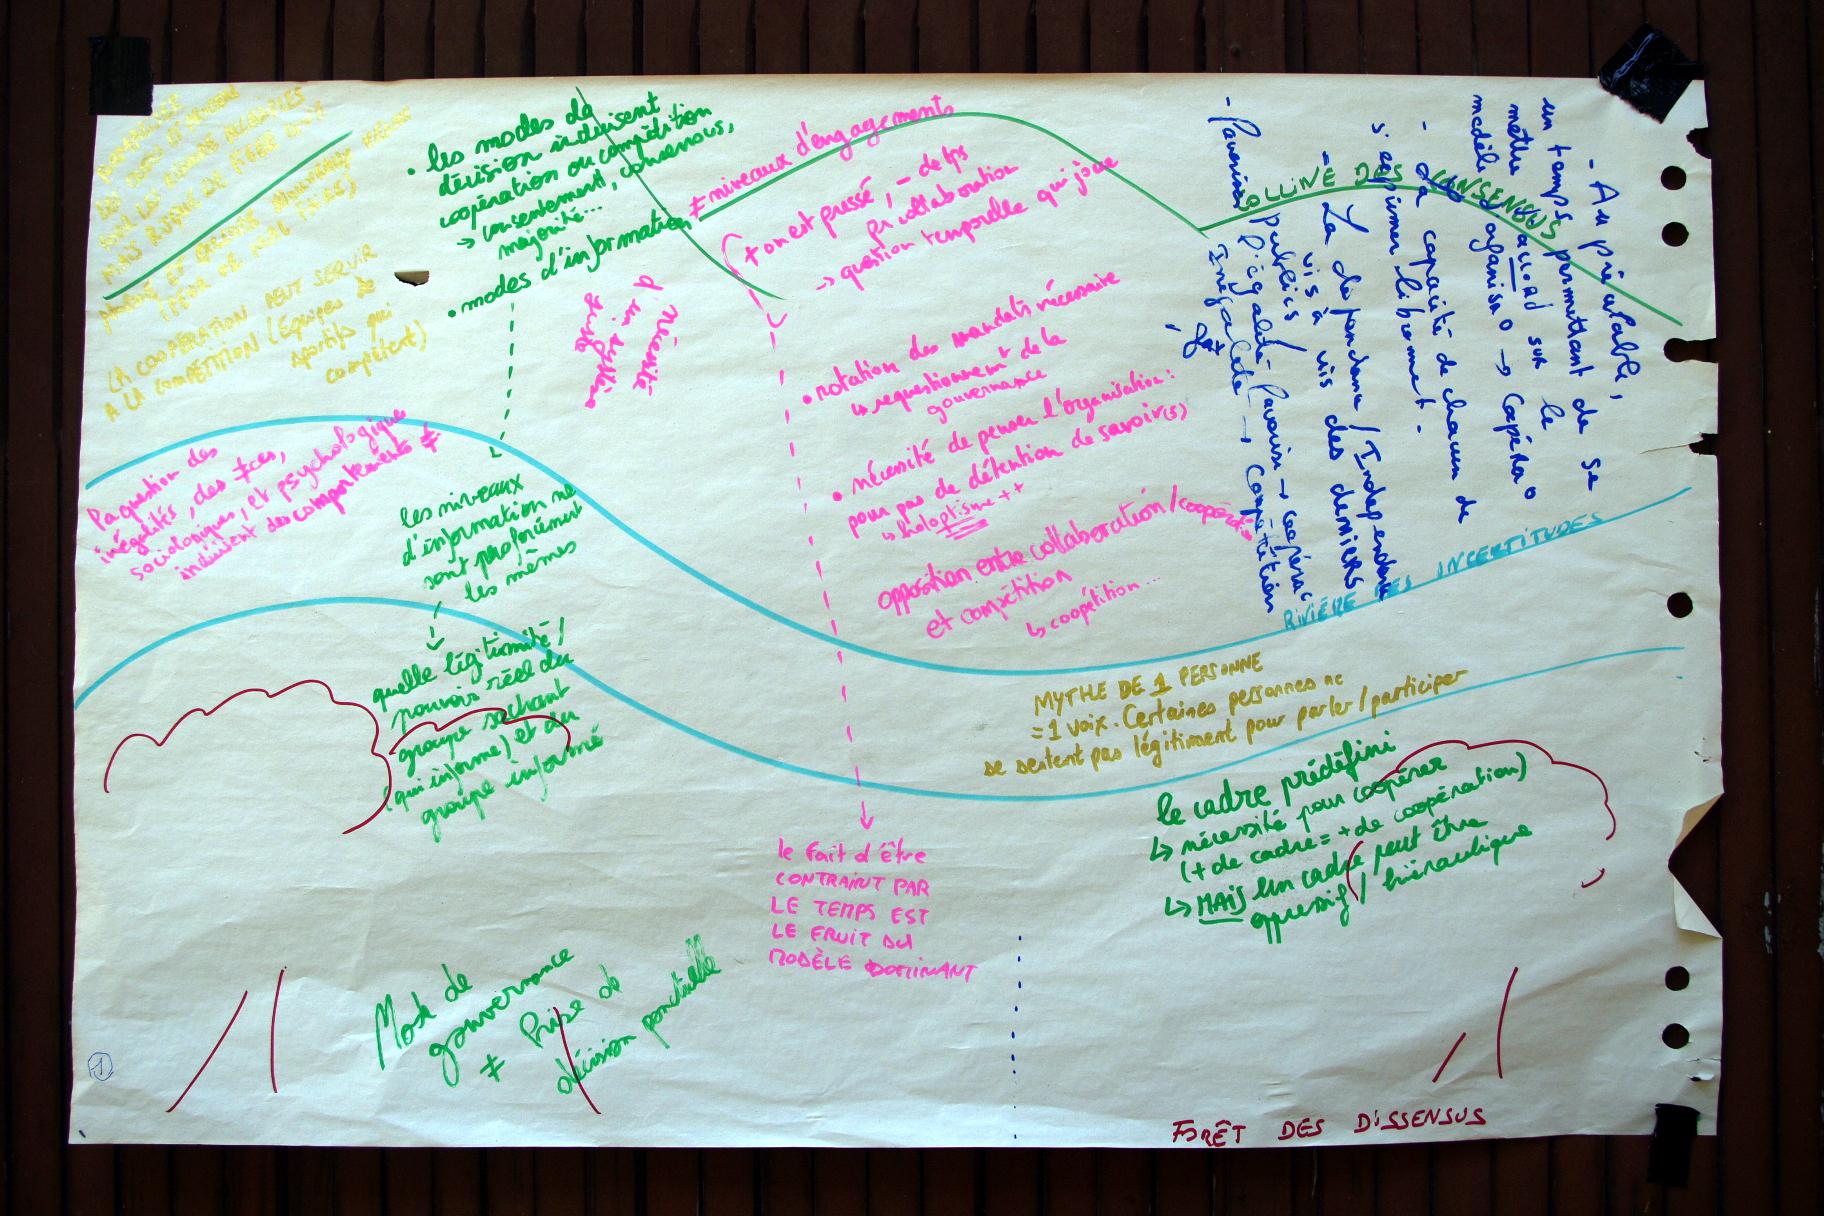 LES DONS D'
AVOIR LA BONNE
MAIS RISQUE DE
(PEUR DE
LA COOPÉRATION PEUT SERVIR
A LA COMPÉTITION (Equipes de
sportifs qui
compétent)
• les modes de
décision induisent
coopération ou compétition
→ consentement, consensus,
majorité...
• modes d'information
les niveaux
d'information ne
sont pas forcément
les mêmes
quelle légitimité /
pouvoir réel du
groupe sachant
(qui informe) et du
groupe informé
nécessité
d'un système
≠ niveaux d'engagements
+ on est pressé, - de tps
pr collaboration
→ question temporelle qui joue
• rotation des mandats nécessaire
↳ requestionnent de la
gouvernance
• nécessité de penser l'organisation :
pour pas de détention de savoir(s)
↳ holoptisme ++
opposition entre collaboration / coopérat°
et compétition
↳ coopétition ...
le fait d'être
CONTRAINT PAR
LE TEMPS EST
LE FRUIT DU
MODÈLE DOMINANT
la question des
inégalités, des ≠ces,
sociologiques, et psychologiques
induisent des comportements ≠
COLLINE DES CONSENSUS
- Au préalable,
un temps permettant de se
mettre d'accord sur le
modèle d'organisa° → Coopéra°
- La capacité de chacun de
s'exprimer librement.
- La dépendance / Indépendance
vis à vis des deniers
publics
- Favoriser l'égalité favorise → coopéra°
Inégalité → Compétition
RIVIÈRE DES INCERTITUDES
MYTHE DE 1 PERSONNE
= 1 voix. Certaines personnes ne
se sentent pas légitiment pour parler / participer
le cadre prédéfini
↳ nécessité pour coopérer
(+ de cadre = + de coopération)
↳ MAIS un cadre peut être
oppressif / hiérarchique
Mode de
gouvernance
≠ Prise de
décision ponctuelle
FORÊT DES DISSENSUS
1